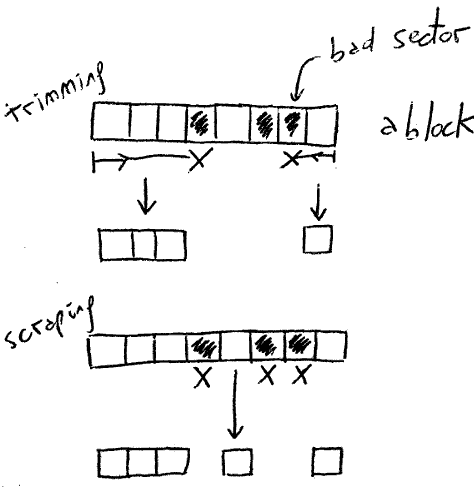 bad sector
trimming
a block
scraping